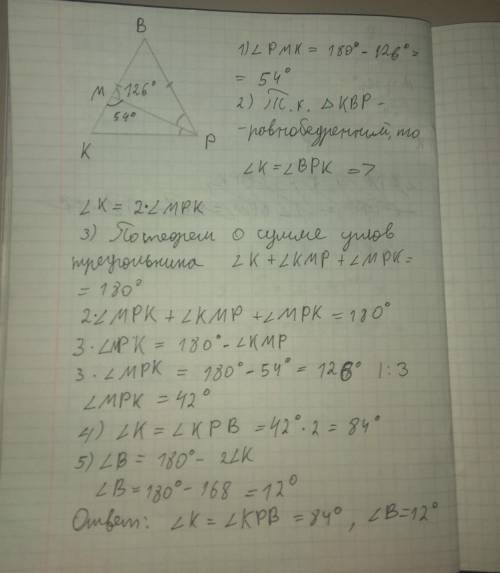 B
M
126°
54°
K
P
1) ∠PMK = 180° - 126° =
= 54°
2) Т.к. △KBP -
-равнобедренный, то
∠K = ∠BPK =>
∠K = 2·∠MPK
3) По теорем о сумме углов
треугольника ∠K + ∠KMP + ∠MPK =
= 180°
2·∠MPK + ∠KMP + ∠MPK = 180°
3·∠MPK = 180° - ∠KMP
3·∠MPK = 180° - 54° = 126° | : 3
∠MPK = 42°
4) ∠K = ∠KPB = 42°·2 = 84°
5) ∠B = 180° - 2∠K
∠B = 180° - 168 = 12°
Ответ: ∠K = ∠KPB = 84°, ∠B = 12°